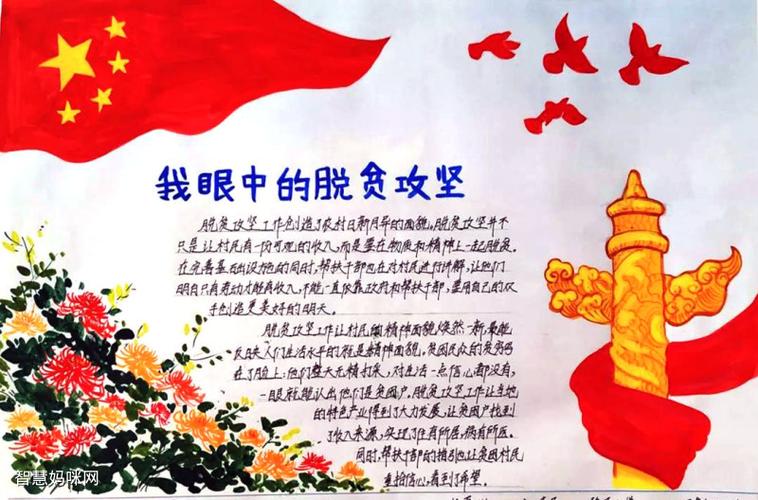 我眼中的脱贫攻坚
脱贫攻坚工作创造了农村日新月异的面貌。脱贫攻坚并不
只是让村民有一份可观的收入,而是要在物质和精神上一起脱贫。
在完善基础设施的同时,帮扶干部也在对村民进行讲解,让他们
明白只有劳动才能有收入,不能一直依靠政府和帮扶干部,要用自己的双
手创造更美好的明天。
脱贫攻坚工作让村民的精神面貌焕然一新,最能
反映人们生活水平的就是精神面貌。贫困民众的贫穷写
在了脸上:他们整天无精打采,对生活一点信心都没有,
一眼就能认出他们是贫困户。脱贫攻坚工作让当地
的特色产业得到了大力发展,让贫困户找到
了收入来源,实现了住有所居,病有所医。
同时,帮扶干部的指引也让贫困村民
重拾信心,看到了希望。
智慧妈咪网